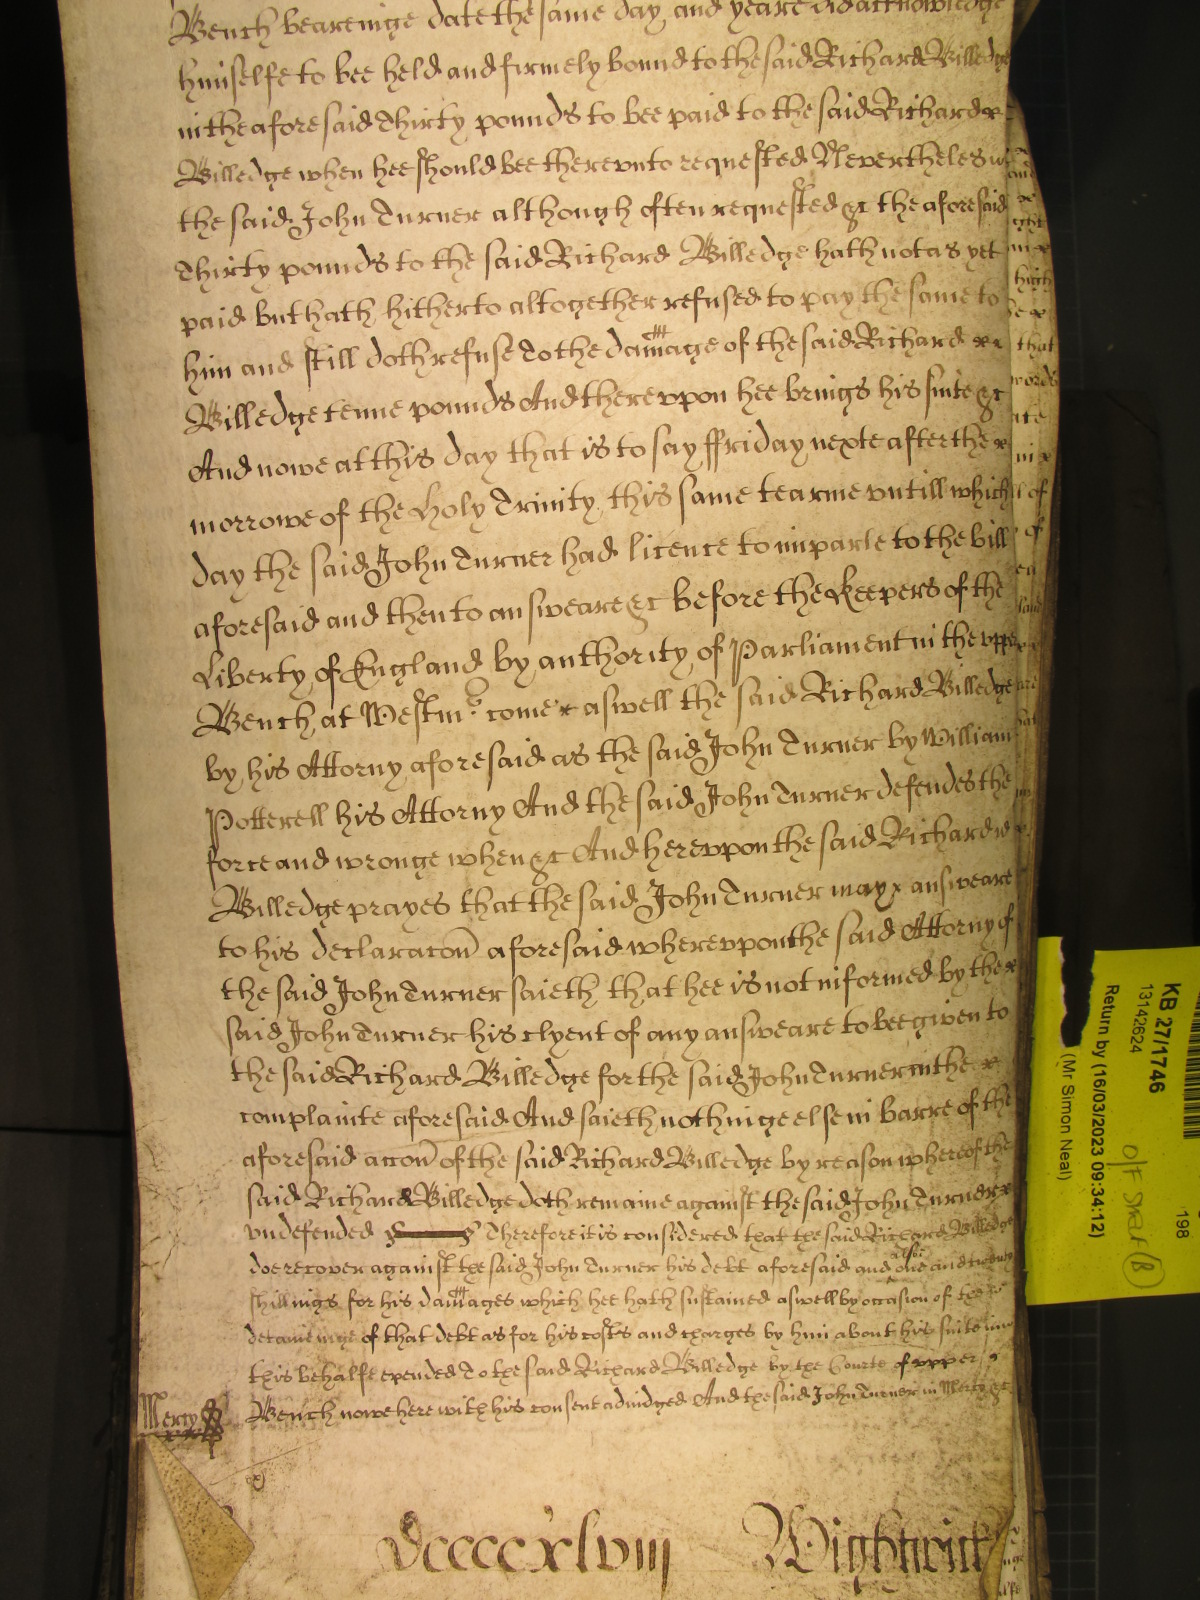 Bench beareinge date the same day and yeare did acknowledge
himselfe to bee held and firmely bound to the said Richard Billedge
in the aforesaid Thirty pounds to bee paid to the said Richard
Billedge when hee should bee therevnto requested Neverthelesse
the said John Turner although often requested &c the aforesaid
Thirty pounds to the said Richard Billedge hath not as yet
paid but hath hitherto altogether refused to pay the same to
him and still doth refuse To the damage of the said Richard
Billedge tenne pounds And therevpon hee brings his suite &c
And nowe at this day that is to say ffriday nexte after the
morrowe of the Holy Trinity this same tearme vntill which
day the said John Turner had licence to imparle to the bill
aforesaid and then to answeare &c before the Keepers of the
Liberty of England by authority of Parliament in the vpper
Bench at Westmr come aswell the said Richard Billedge
by his Attorny aforesaid as the said John Turner by William
Potterell his Attorny And the said John Turner defendes the
force and wronge when &c And herevpon the said Richard
Billedge prayes that the said John Turner may answeare
to his declaracon aforesaid wherevpon the said Attorny of
the said John Turner saieth that hee is not informed by the
said John Turner his clyent of any answeare to bee given to
the said Richard Billedge for the said John Turner in the
complainte aforesaid And saieth nothinge else in barre of the
aforesaid accon of the said Richard Billedge by reason whereof the
said Richard Billedge doth remaine against the said John Turner
vndefended Therefore it is considered that the said Richard Billedge
doe recover against the said John Turner his debt aforesaid and also one and twenty
shillings for his damages which hee hath sustained aswell by occasion of the
detaineinge of that debt as for his costs and charges by him about his suite in
this behalfe expended To the said Richard Billedge by the Courte of vpper
Bench nowe here with his consent adiudged And the said John Turner in Mercy &c
Mercy
Dccccxlviij Wightwick
KB 27/1746
13142624
Return by (16/03/2023 09:34:12)
(Mr Simon Neal)
198